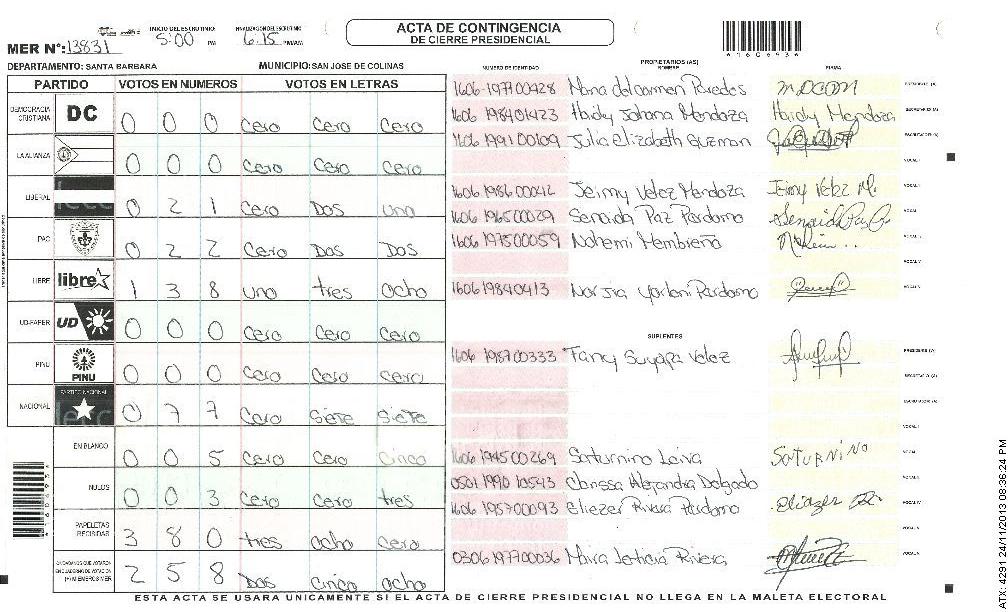 ACTA DE CONTINGENCIA
DE CIERRE PRESIDENCIAL
INICIO DEL ESCRUTINIO: 5:00 PM
FINALIZACION DEL ESCRUTINIO: 6:15 PM/AM
MER Nº: 13831
DEPARTAMENTO: SANTA BARBARA
MUNICIPIO: SAN JOSE DE COLINAS
PARTIDO VOTOS EN NUMEROS VOTOS EN LETRAS
DEMOCRACIA CRISTIANA DC 0 0 0 Cero Cero Cero
LA ALIANZA 0 0 0 Cero Cero Cero
LIBERAL 0 2 1 Cero Dos uno
PAC 0 2 2 Cero Dos Dos
LIBRE libre 1 3 8 uno tres ocho
UD-FAPER UD 0 0 0 Cero Cero Cero
PINU PINU 0 0 0 Cero Cero Cero
NACIONAL PARTIDO NACIONAL 0 7 7 Cero Siete Siete
EN BLANCO 0 0 5 Cero Cero Cinco
NULOS 0 0 3 Cero Cero tres
PAPELETAS RECIBIDAS 3 8 0 tres ocho Cero
CIUDADANOS QUE VOTARON EN CUADERNO DE VOTACION (+) MIEMBROS MER 2 5 8 Dos Cinco ocho
PROPIETARIOS (AS)
NUMERO DE IDENTIDAD NOMBRE FIRMA
1606-1971-00428 Maria del carmen Paredes
1606 1984 01423 Haidy Johana Mendoza Haidy Mendoza
1606 1991 00109 Julia Elizabeth Guzman
1606 1986 00042 Jeimy Velez Mendoza Jeimy Velez M.
1606 1965 00029 Senaida Paz Perdomo
1606 1975 00059 Nohemi Membreña
Perdomo
SUPLENTES
1606 1987 00333 Velez
1606 1945 00269 Saturnino Leiva SATURNINO
0501 1990 10543 Clarissa Alejandra Delgado
1606 1957 00093 Eliezer Rivera Perdomo
0306 1977 00036 Maira Leticia Rivera
ESTA ACTA SE USARA UNICAMENTE SI EL ACTA DE CIERRE PRESIDENCIAL NO LLEGA EN LA MALETA ELECTORAL
ATX: 4291 24/11/2013 08:36:24 PM